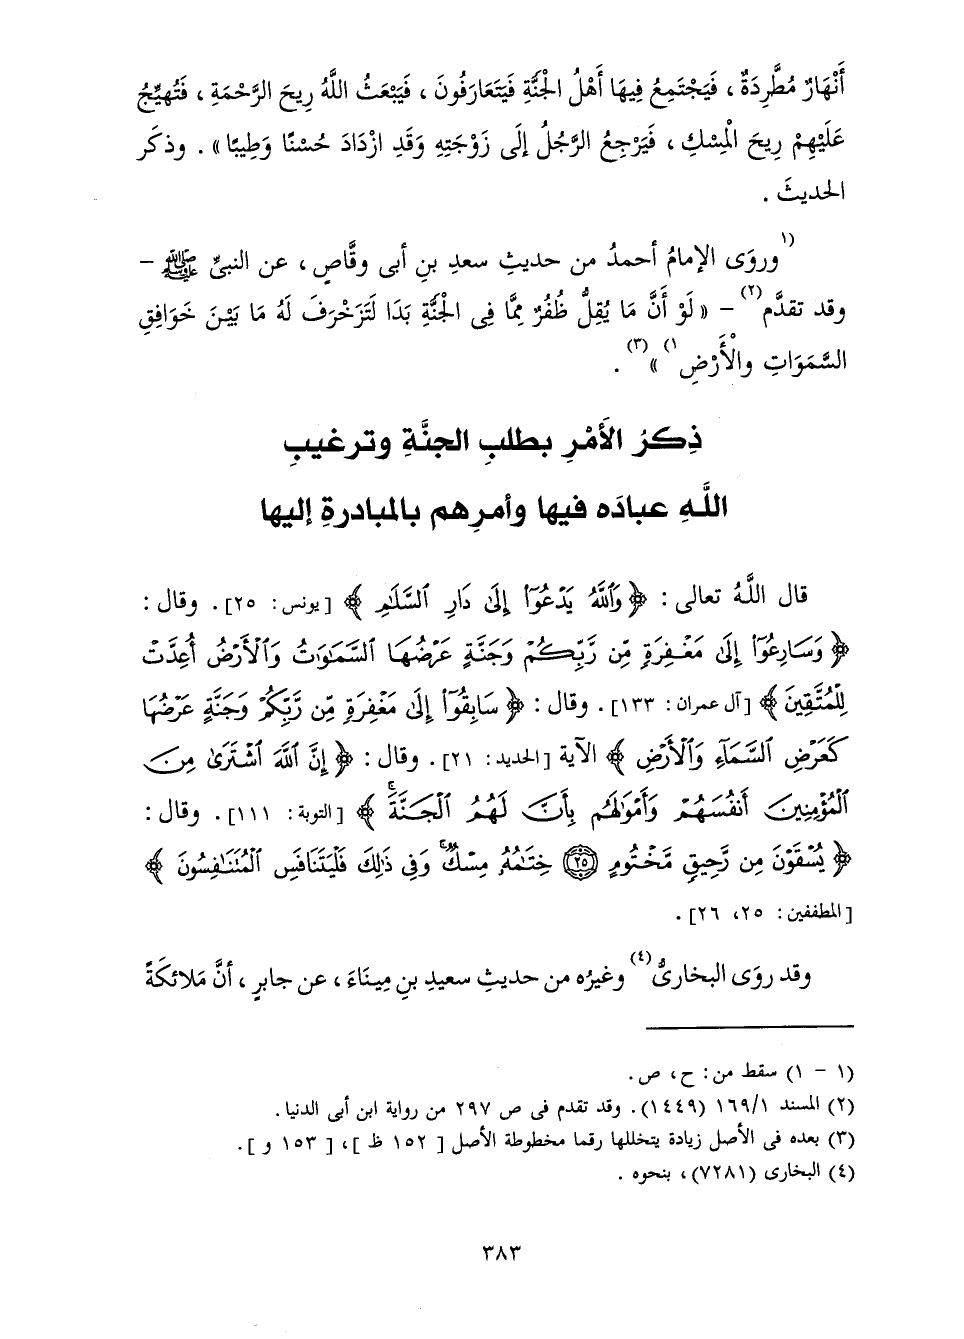 أَنْهَارٌ مُطَّرِدَةٌ ، فَيَجْتَمِعُ فِيهَا أَهْلُ الْجَنَّةِ فَيَتَعَارَفُونَ ، فَيَبْعَثُ اللَّهُ رِيحَ الرَّحْمَةِ ، فَتُهَيِّجُ
عَلَيْهِمْ رِيحَ الْمِسْكِ ، فَيَرْجِعُ الرَّجُلُ إِلَى زَوْجَتِهِ وَقَدِ ازْدَادَ حُسْنًا وَطِيبًا» . وذكَر
الحديثَ .
(١وروَى الإمامُ أحمدُ من حديثِ سعدِ بنِ أبى وقَّاصٍ ، عن النبىِّ ﷺ –
وقد تقدَّم(٢) – «لَوْ أَنَّ مَا يُقِلُّ ظُفُرٌ مِمَّا فِى الْجَنَّةِ بَدَا لَتَزَخْرَفَ لَهُ مَا بَيْنَ خَوَافِقِ
السَّمَوَاتِ والْأَرْضِ ١)»(٣) .
ذِكرُ الأَمْرِ بطلبِ الجنَّةِ وترغيبِ
اللَّهِ عبادَه فيها وأمرِهم بالمبادرةِ إليها
قال اللَّهُ تعالى : ﴿وَٱللَّهُ يَدْعُوٓا۟ إِلَىٰ دَارِ ٱلسَّلَٰمِ﴾ [يونس: ٢٥] . وقال :
﴿وَسَارِعُوٓا۟ إِلَىٰ مَغْفِرَةٍ مِّن رَّبِّكُمْ وَجَنَّةٍ عَرْضُهَا ٱلسَّمَٰوَٰتُ وَٱلْأَرْضُ أُعِدَّتْ
لِلْمُتَّقِينَ﴾ [آل عمران: ١٣٣] . وقال : ﴿سَابِقُوٓا۟ إِلَىٰ مَغْفِرَةٍ مِّن رَّبِّكُمْ وَجَنَّةٍ عَرْضُهَا
كَعَرْضِ ٱلسَّمَآءِ وَٱلْأَرْضِ﴾ الآية [الحديد: ٢١] . وقال : ﴿إِنَّ ٱللَّهَ ٱشْتَرَىٰ مِنَ
ٱلْمُؤْمِنِينَ أَنفُسَهُمْ وَأَمْوَٰلَهُم بِأَنَّ لَهُمُ ٱلْجَنَّةَ ۚ﴾ [التوبة: ١١١] . وقال :
﴿يُسْقَوْنَ مِن رَّحِيقٍ مَّخْتُومٍ ۝٢٥ خِتَٰمُهُۥ مِسْكٌ ۚ وَفِى ذَٰلِكَ فَلْيَتَنَافَسِ ٱلْمُتَنَٰفِسُونَ﴾
[المطففين: ٢٥، ٢٦] .
وقد روَى البخارىُّ(٤) وغيرُه من حديثِ سعيدِ بنِ مِينَاءَ ، عن جابرٍ ، أنَّ مَلائكَةً
(١ – ١) سقط من: ح، ص.
(٢) المسند ١/١٦٩ (١٤٤٩). وقد تقدم فى ص ٢٩٧ من رواية ابن أبى الدنيا.
(٣) بعده فى الأصل زيادة يتخللها رقما مخطوطة الأصل [ ١٥٢ ظ ]، [ ١٥٣ و ].
(٤) البخارى (٧٢٨١)، بنحوه .
٣٨٣